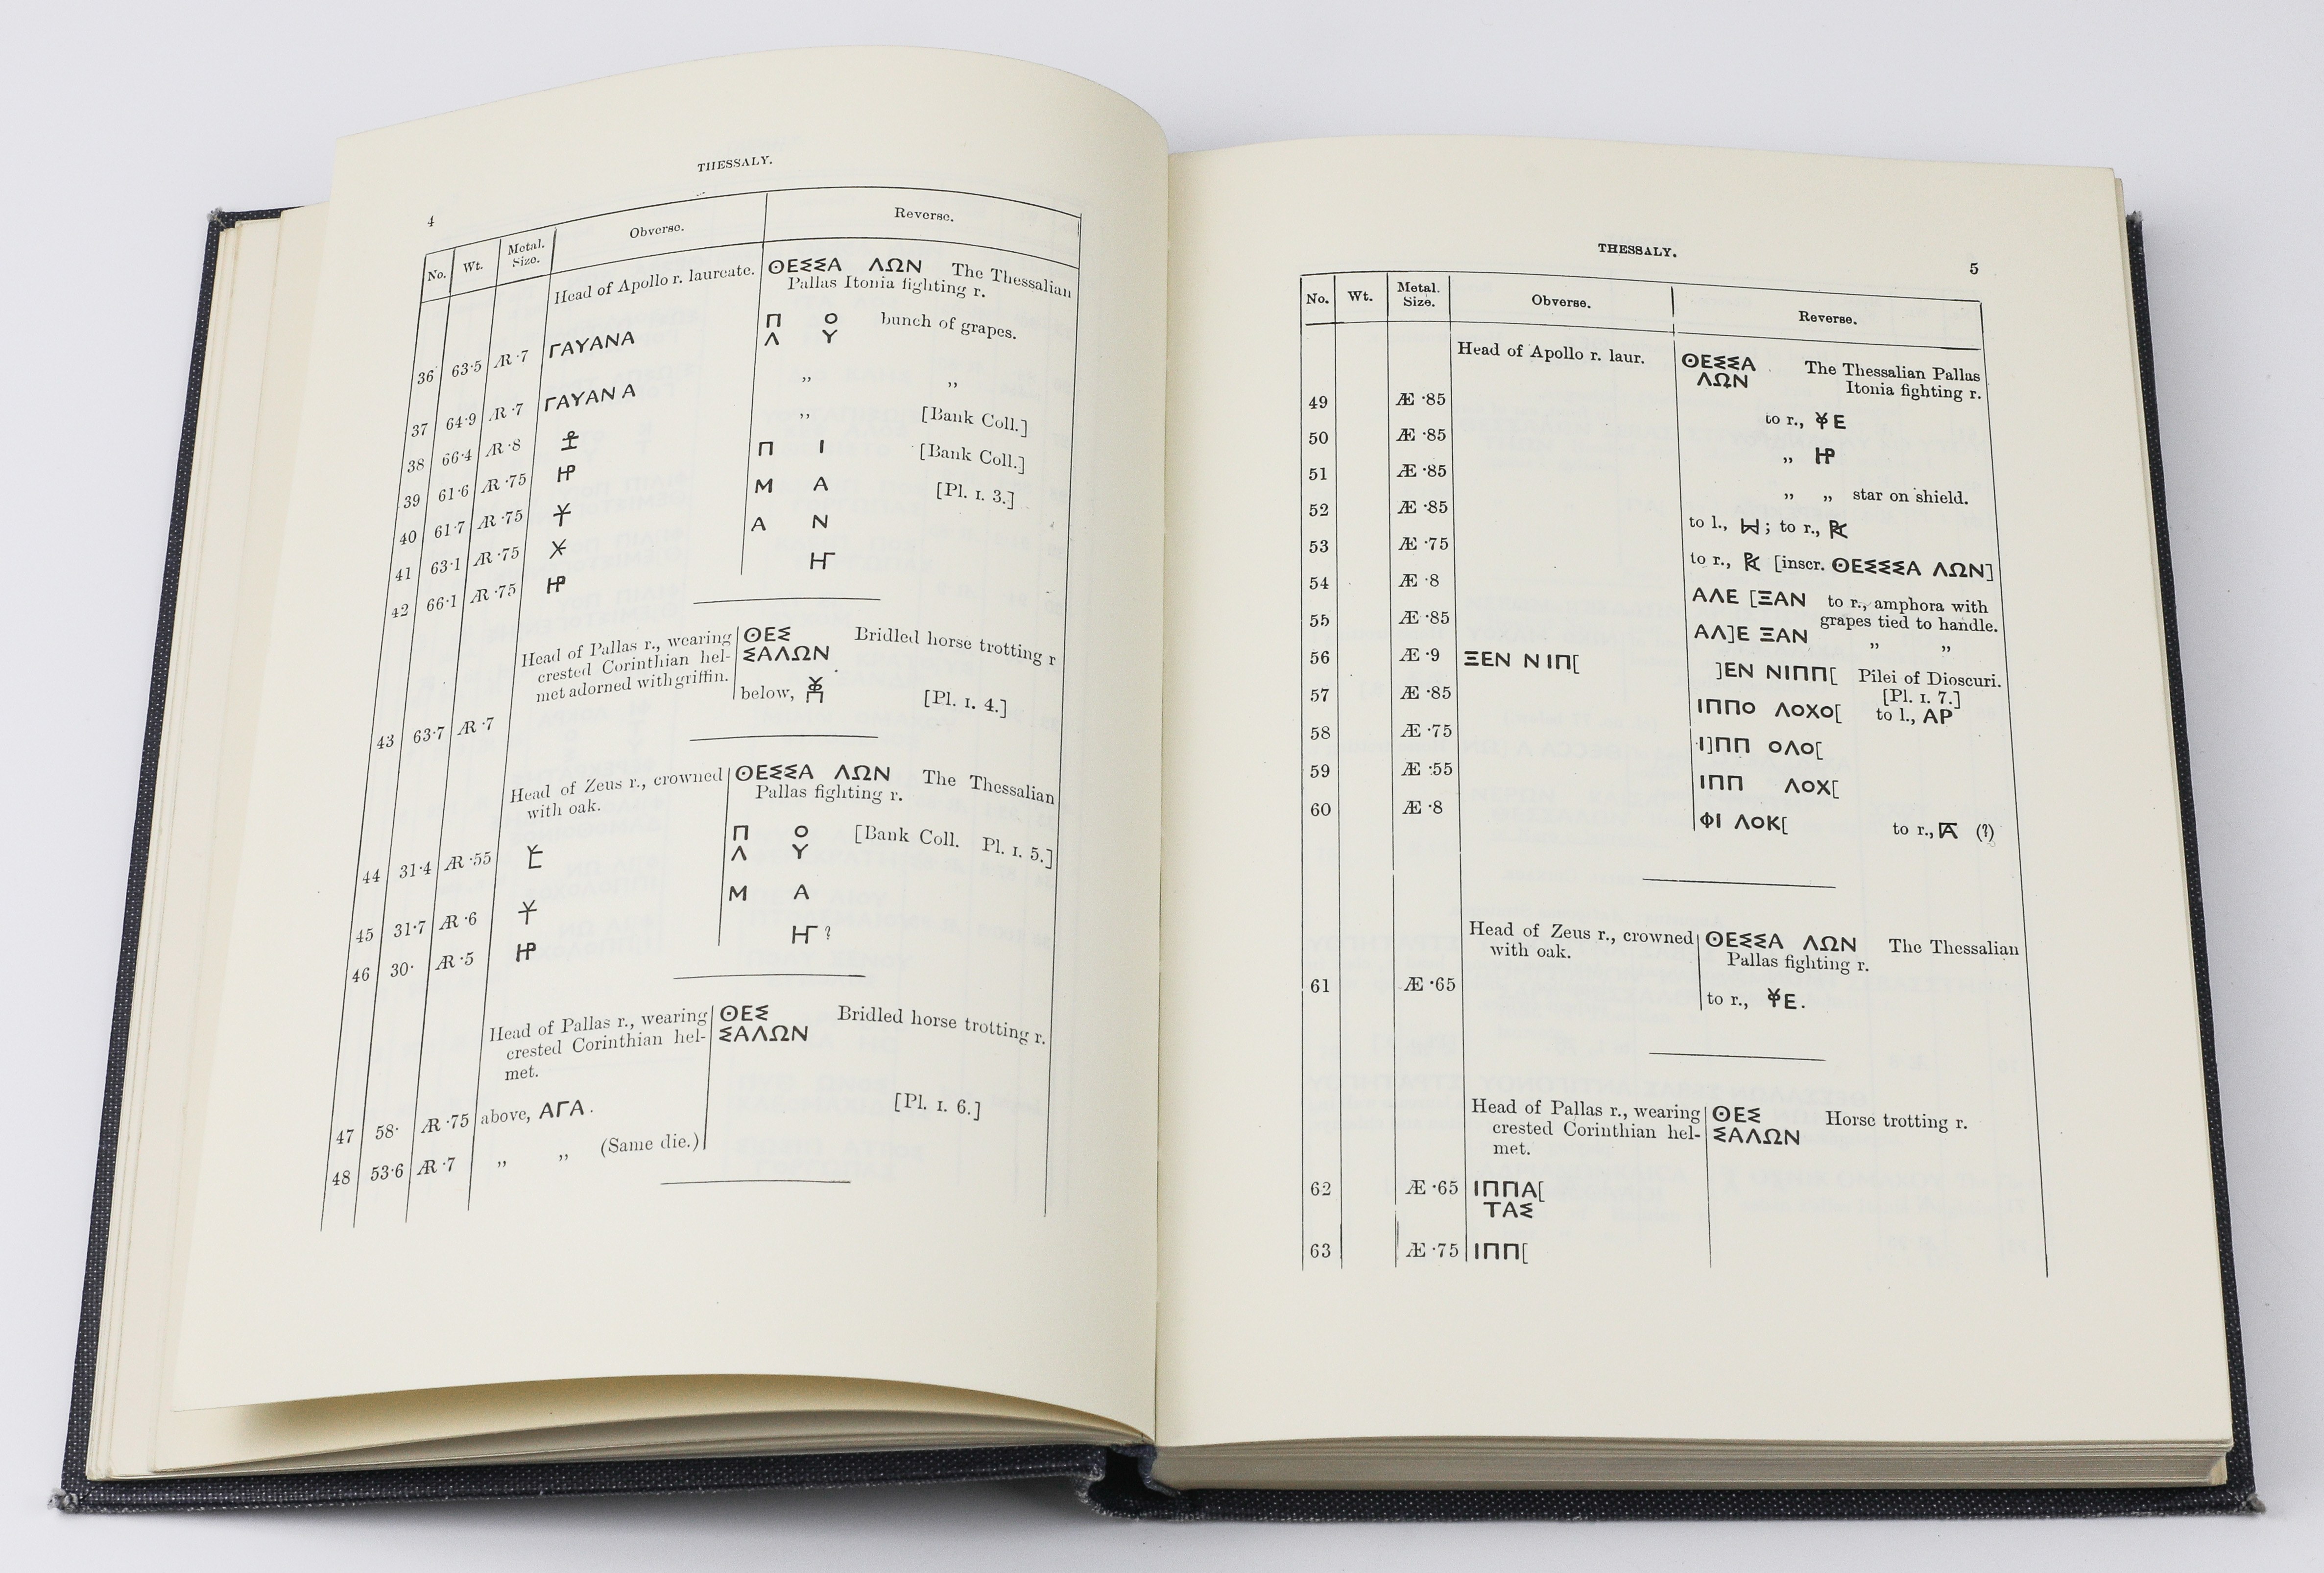 THESSALY.
4
No. Wt. Metal. Size. Obverse. Reverse.
Head of Apollo r. laureate. ΘΕΣΣΑ ΛΩΝ The Thessalian
Pallas Itonia fighting r.
36 63·5 Æ ·7 ΓΑΥΑΝΑ Π Ο bunch of grapes.
Λ Υ
37 64·9 ΑR ·7 ΓΑΥΑΝ Α ,, ,,
38 66·4 ΑR ·8 ,, [Bank Coll.]
39 61·6 ΑR ·75 Π Ι [Bank Coll.]
40 61·7 ΑR ·75 Μ Α [Pl. I. 3.]
41 63·1 ΑR ·75 Α Ν
42 66·1 ΑR ·75
Head of Pallas r., wearing ΘΕΣ Bridled horse trotting r
crested Corinthian hel- ΣΑΛΩΝ
met adorned with griffin.
43 63·7 ΑR ·7 below, [Pl. I. 4.]
Head of Zeus r., crowned ΘΕΣΣΑ ΛΩΝ The Thessalian
with oak. Pallas fighting r.
44 31·4 ΑR ·55 Π Ο [Bank Coll. Pl. I. 5.]
Λ Υ
45 31·7 ΑR ·6 Μ Α
46 30· ΑR ·5 ?
Head of Pallas r., wearing ΘΕΣ Bridled horse trotting r.
crested Corinthian hel- ΣΑΛΩΝ
met.
47 58· ΑR ·75 above, ΑΓΑ. [Pl. I. 6.]
48 53·6 ΑR ·7 ,, ,, (Same die.)
THESSALY.
5
No. Wt. Metal. Size. Obverse. Reverse.
Head of Apollo r. laur. ΘΕΣΣΑ The Thessalian Pallas
ΛΩΝ Itonia fighting r.
49 Æ ·85 to r., Ε
50 Æ ·85 ,,
51 Æ ·85 ,, ,, star on shield.
52 Æ ·85 to l., ; to r.,
53 Æ ·75 to r., [inscr. ΘΕΣΣΣΑ ΛΩΝ]
54 Æ ·8 ΑΛΕ [ΞΑΝ to r., amphora with
grapes tied to handle.
55 Æ ·85 ΑΛ]Ε ΞΑΝ ,, ,,
56 Æ ·9 ΞΕΝ ΝΙΠ[ ]ΕΝ ΝΙΠΠ[ Pilei of Dioscuri.
[Pl. I. 7.]
57 Æ ·85 ΙΠΠΟ ΛΟΧΟ[ to l., ΑΡ
58 Æ ·75 Ι]ΠΠ ΟΛΟ[
59 Æ ·55 ΙΠΠ ΛΟΧ[
60 Æ ·8 ΦΙ ΛΟΚ[ to r., (?)
Head of Zeus r., crowned ΘΕΣΣΑ ΛΩΝ The Thessalian
with oak. Pallas fighting r.
61 Æ ·65 to r., Ε.
Head of Pallas r., wearing ΘΕΣ Horse trotting r.
crested Corinthian hel- ΣΑΛΩΝ
met.
62 Æ ·65 ΙΠΠΑ[
ΤΑΣ
63 Æ ·75 ΙΠΠ[